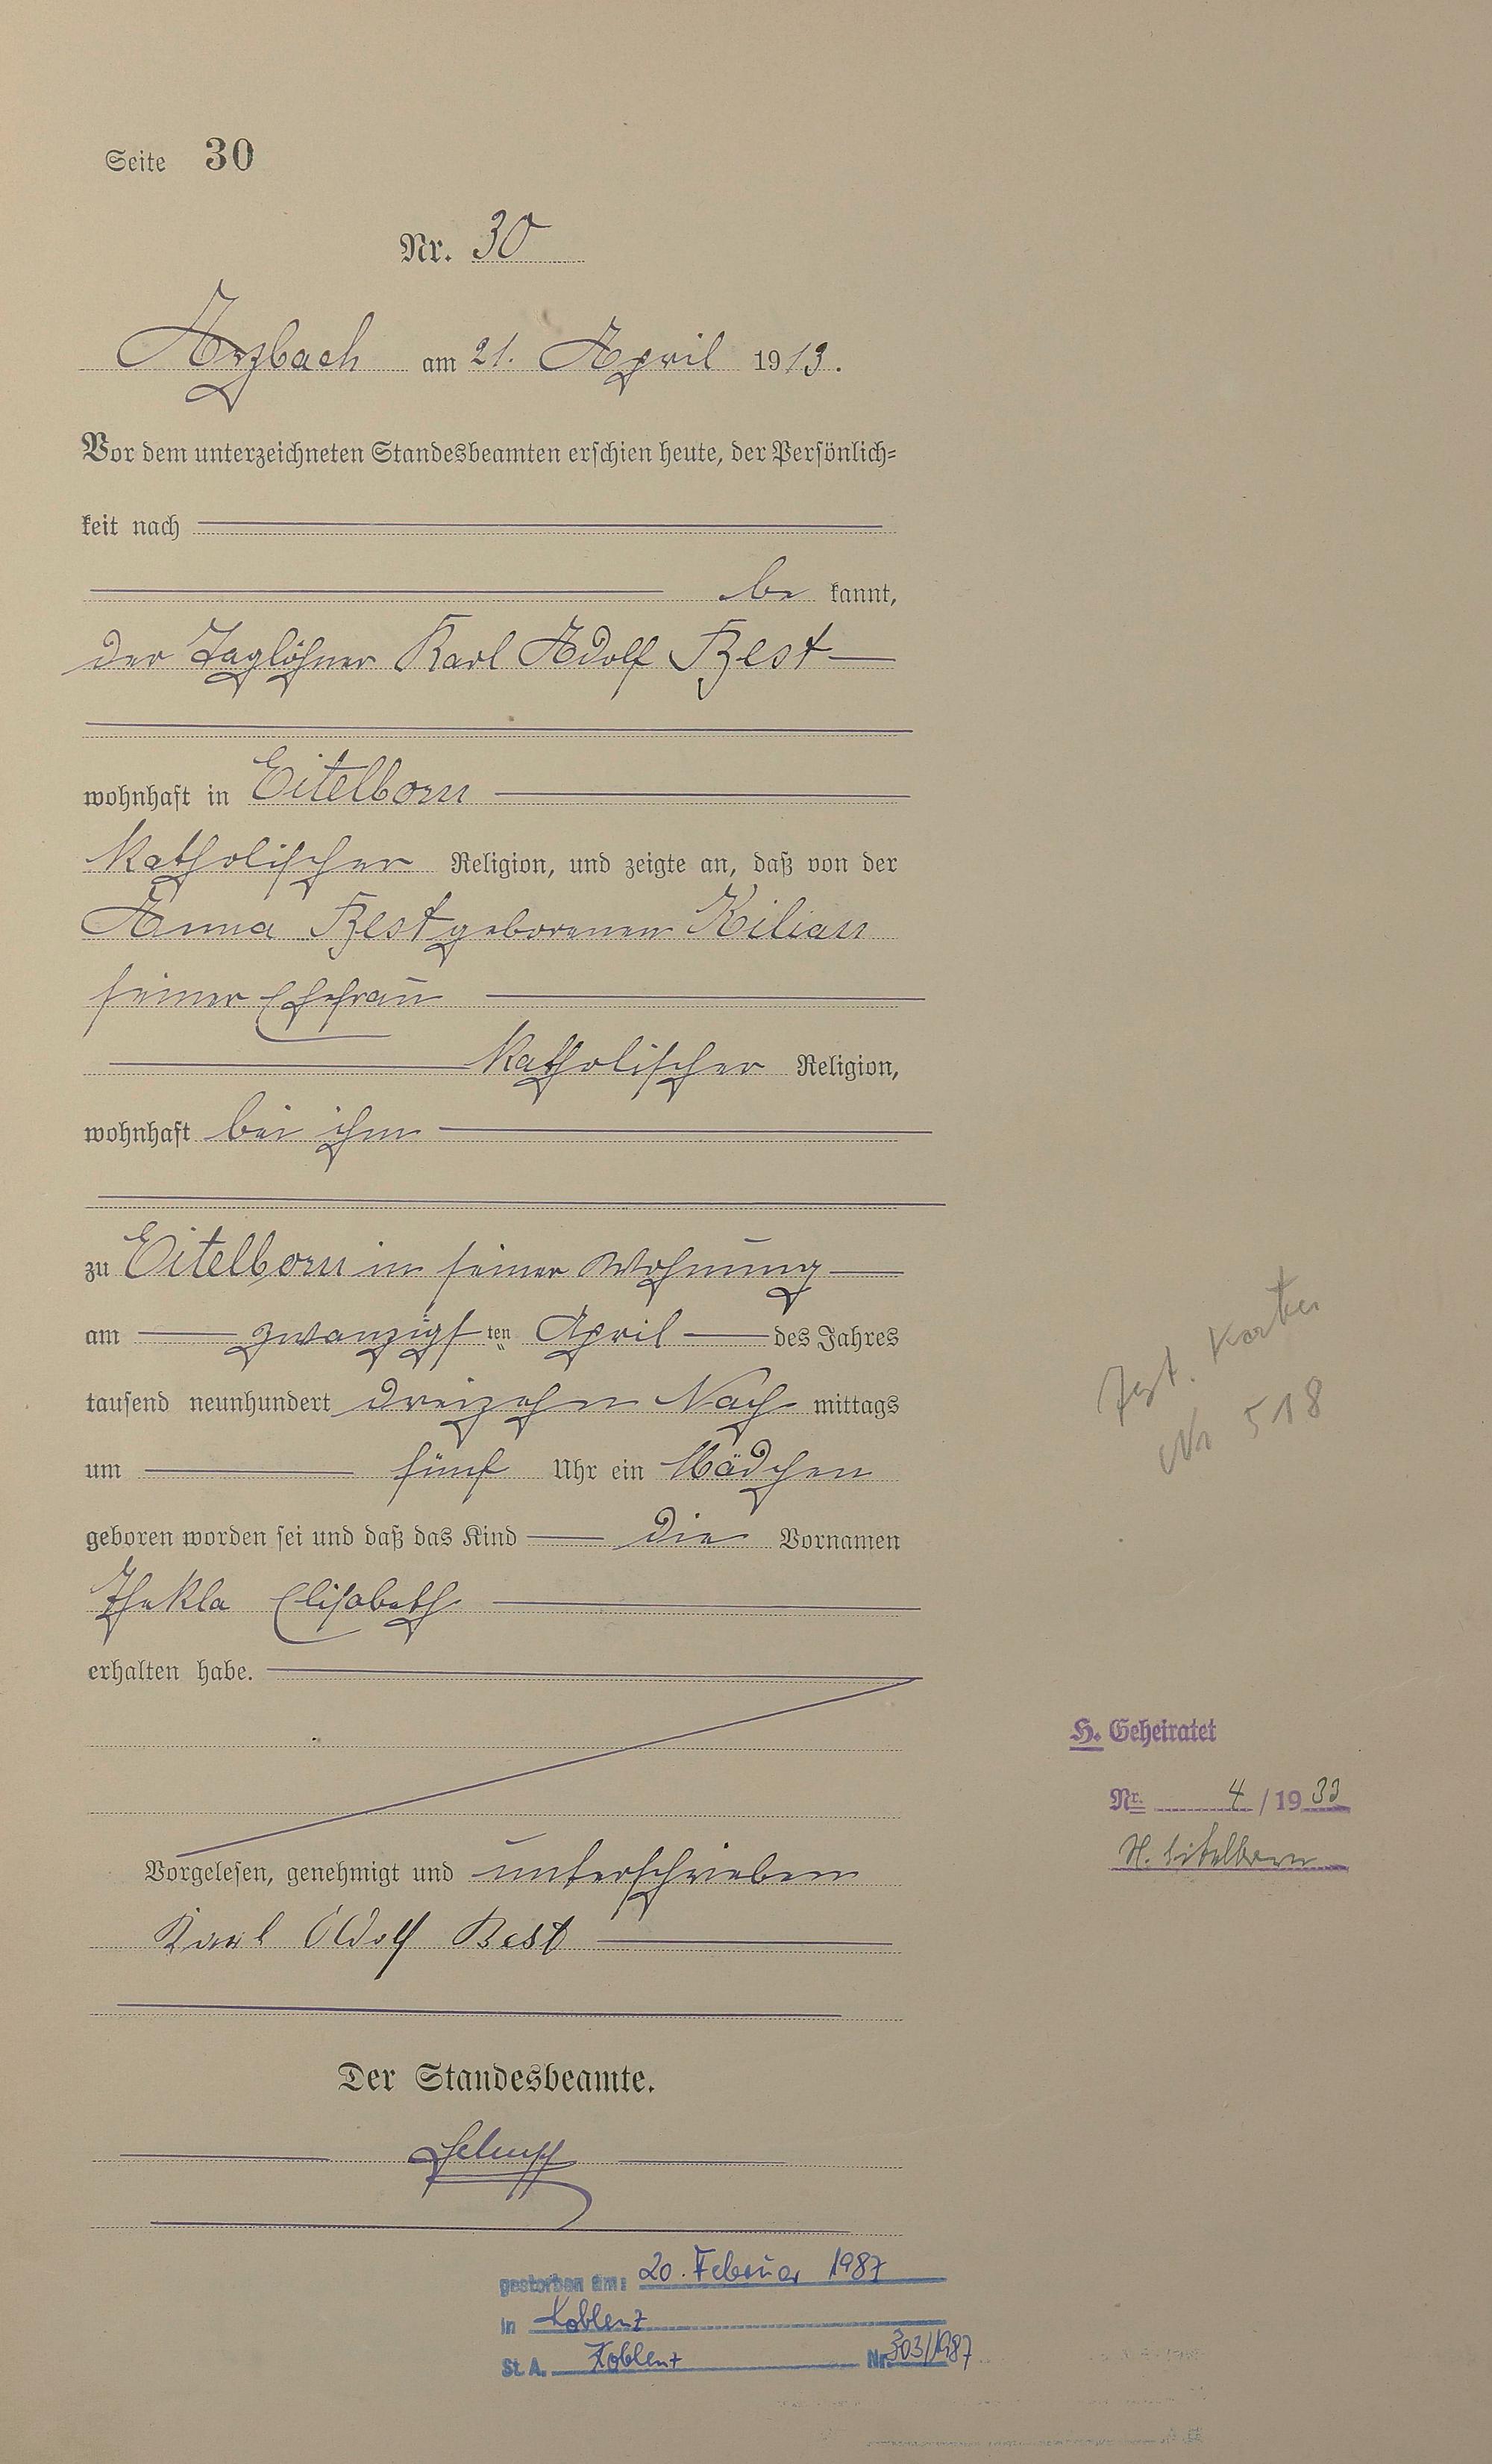 Seite 30
Nr. 30
Arzbach am 21. April 1913.
Vor dem unterzeichneten Standesbeamten erschien heute, der Persönlich-
keit nach
be kannt,
der Taglöhner Karl Adolf Best
wohnhaft in Eitelborn
katholischer Religion, und zeigte an, daß von der
Anna Best geborenen Kilian
seiner Ehefrau
katholischer Religion,
wohnhaft bei ihm
zu Eitelborn in seiner Wohnung
am zwanzigsten April des Jahres
tausend neunhundert dreizehn Nach mittags
um fünf Uhr ein Mädchen
geboren worden sei und daß das Kind die Vornamen
Thekla Elisabeth
erhalten habe.
Vorgelesen, genehmigt und unterschrieben
Karl Adolf Best
Der Standesbeamte.
gestorben am: 20. Februar 1987
in Koblenz
St. A. Koblenz Nr. 303/1987
Karten
Nr 518
H. Geheiratet
Nr. 4/1933
Eitelborn